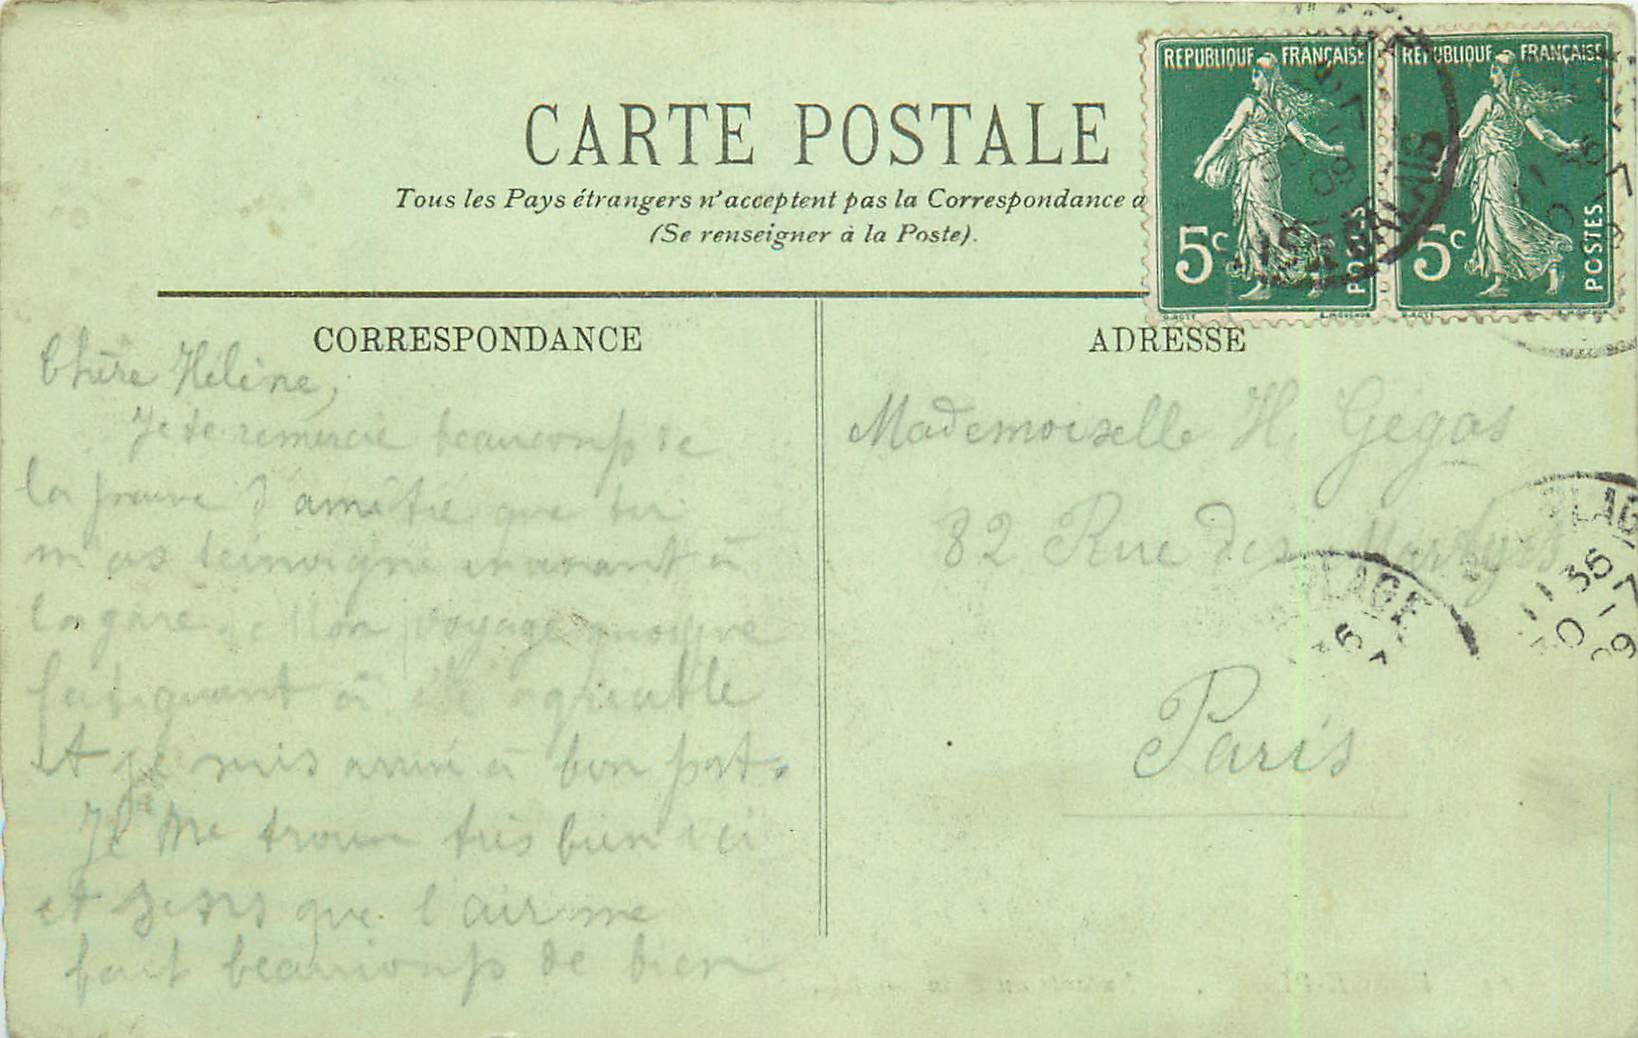 CARTE POSTALE
Tous les Pays étrangers n'acceptent pas la Correspondance a
(Se renseigner à la Poste).
REPUBLIQUE FRANÇAISE
5c
POSTES
REPUBLIQUE FRANÇAISE
5c
POSTES
CALAIS
CORRESPONDANCE
ADRESSE
Chère Hélène,
Je te remercie beaucoup de
la preuve d'amitié que tu
m'as témoigné en venant à
la gare. Mon voyage quoique
fatiguant à été agréable
et je suis arrivé à bon port.
Je me trouve très bien ici
et sens que l'air me
fait beaucoup de bien
Mademoiselle H. Gégas
82 Rue des Martyrs
Paris
PLAGE
11 35
30 - 7
09
PLAGE
35